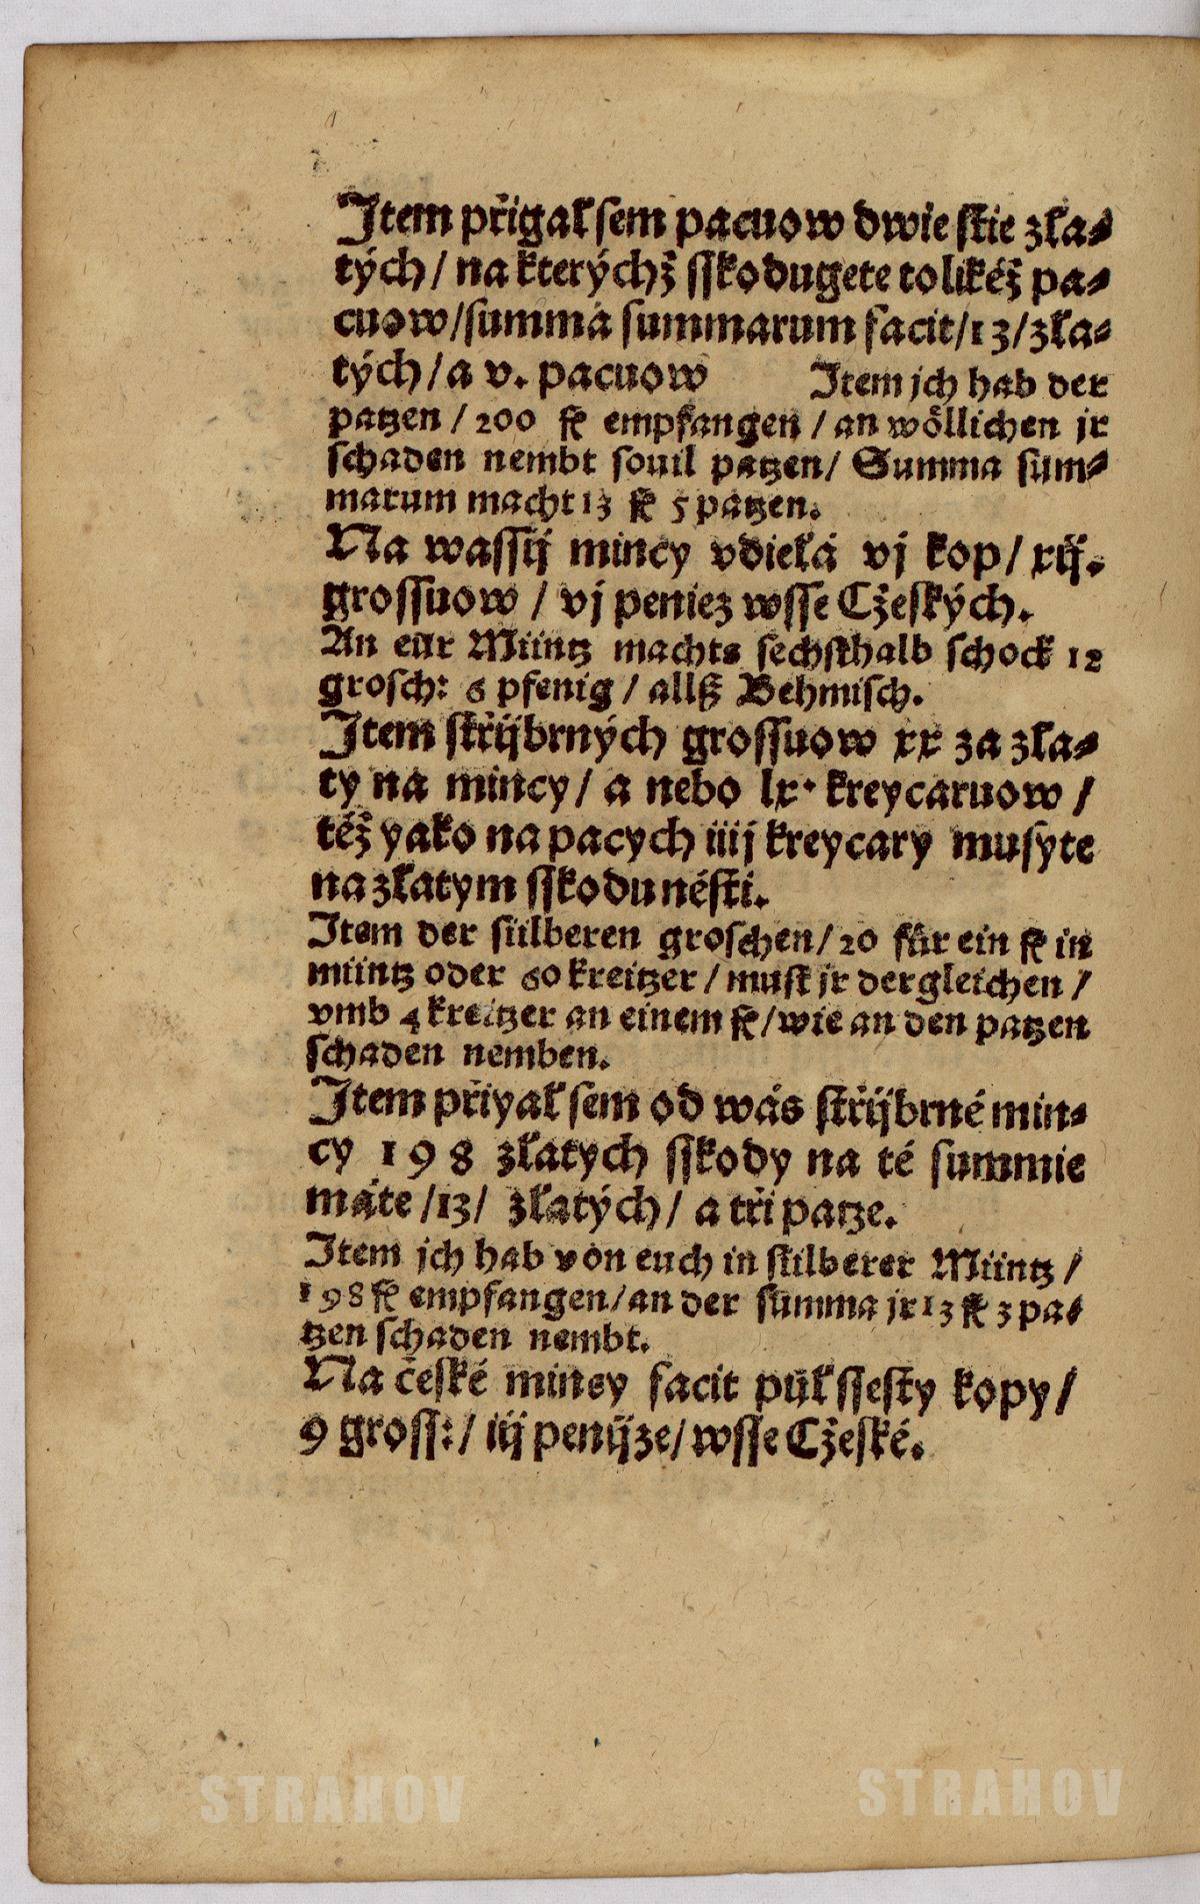 Item přigal sem pacuow dwie stie zla⸗
tých / na kterýchž sskodugete tolikéž pa⸗
cuow / summá summarum facit / 13 / zla⸗
tých / a v. pacuow Item jch hab der
patzen / 200 fl empfangen / an wöllichen jr
schaden nembt souil patzen / Summa sum⸗
marum macht 13 fl 5 patzen.
Na wassij mincy vdielá vj kop / xij.
grossuow / vj peniez wsse Cžeských.
An eür Müntz machts sechsthalb schock 12
grosch: 6 pfenig / allß Behmisch.
Item střijbrných grossuow xx za zla⸗
ty na mincy / a nebo lx. kreycaruow /
též yako na pacych iiij kreycary musyte
na zlatym sskodu nésti.
Item der silberen groschen / 20 für ein fl in
müntz oder 60 kreitzer / must jr dergleichen /
vmb 4 kreitzer an einem fl / wie an den patzen
schaden nemben.
Item přiyal sem od wás střijbrné min⸗
cy 198 zlatych sskody na té summie
máte / 13 / zlatých / a tři patze.
Item jch hab von euch in silberer Müntz /
198 fl empfangen / an der summa jr 13 fl 3 pa⸗
tzen schaden nembt.
Na české mincy facit puol ssesty kopy /
9 gross: / iij penijze / wsse Cžeské.
STRAHOV STRAHOV